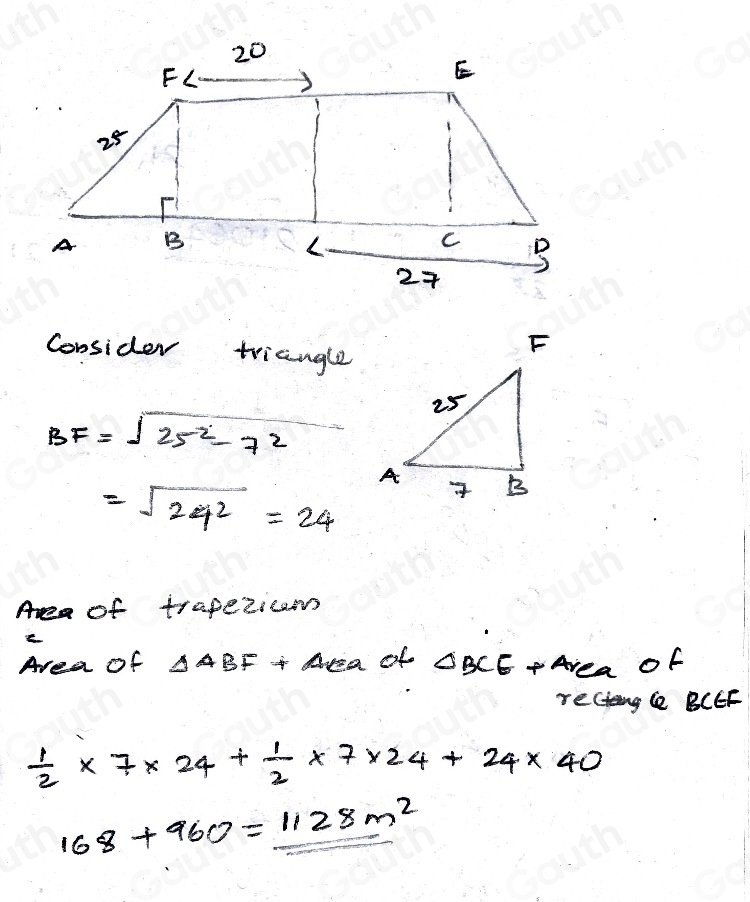 20
F E
25
A B C D
27
Consider triangle
F
25
BF = √25² - 7²
A 7 B
= √24² = 24
Area of trapezium
=
Area of △ABF + Area of △BCE + Area of
rectangle BCEF
1/2 × 7 × 24 + 1/2 × 7 × 24 + 24 × 40
168 + 960 = 1128 m²